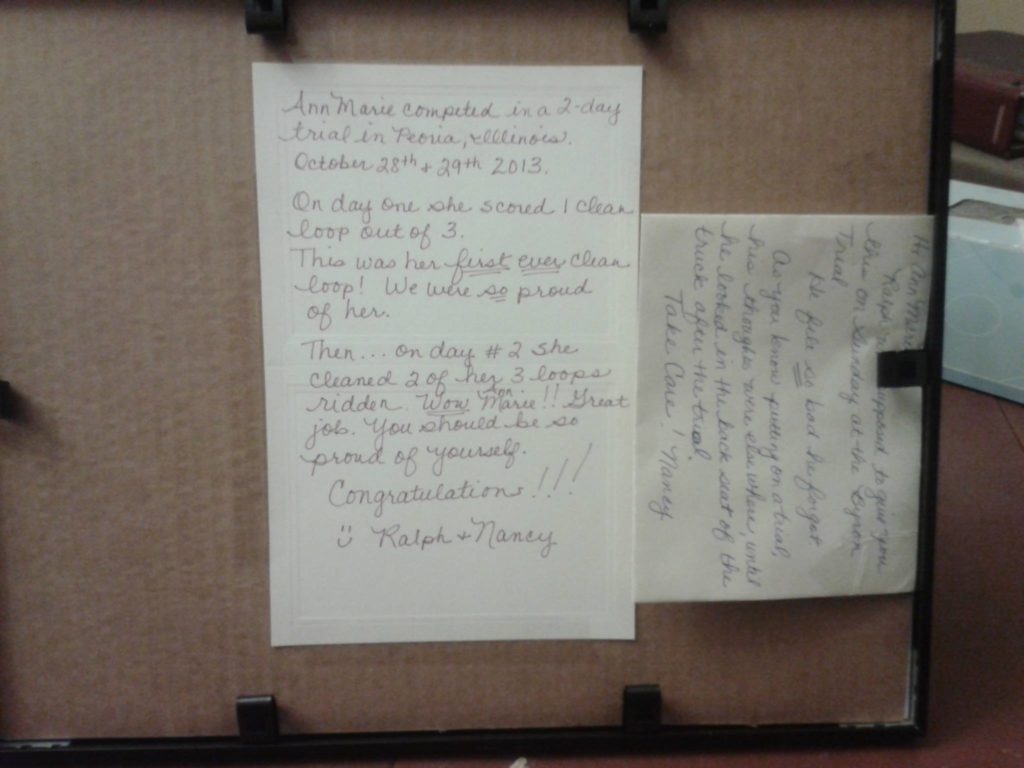 Ann Marie competed in a 2-day
trial in Peoria, Illinois.
October 28th + 29th 2013.
On day one she scored 1 clean
loop out of 3.
This was her first ever clean
loop! We were so proud
of her.
Then... on day #2 she
cleaned 2 of her 3 loops
ridden. Wow Ann Marie!! Great
job. You should be so
proud of yourself.
Congratulations!!!
Ralph + Nancy
Hi Ann Marie
Ralph was supposed to give you
this on Sunday at the Byron
Trial
He felt so bad he forgot.
As you know putting on a trial,
his thoughts were elsewhere, until
he looked in the back seat of the
truck after the trial
Take Care! Nancy